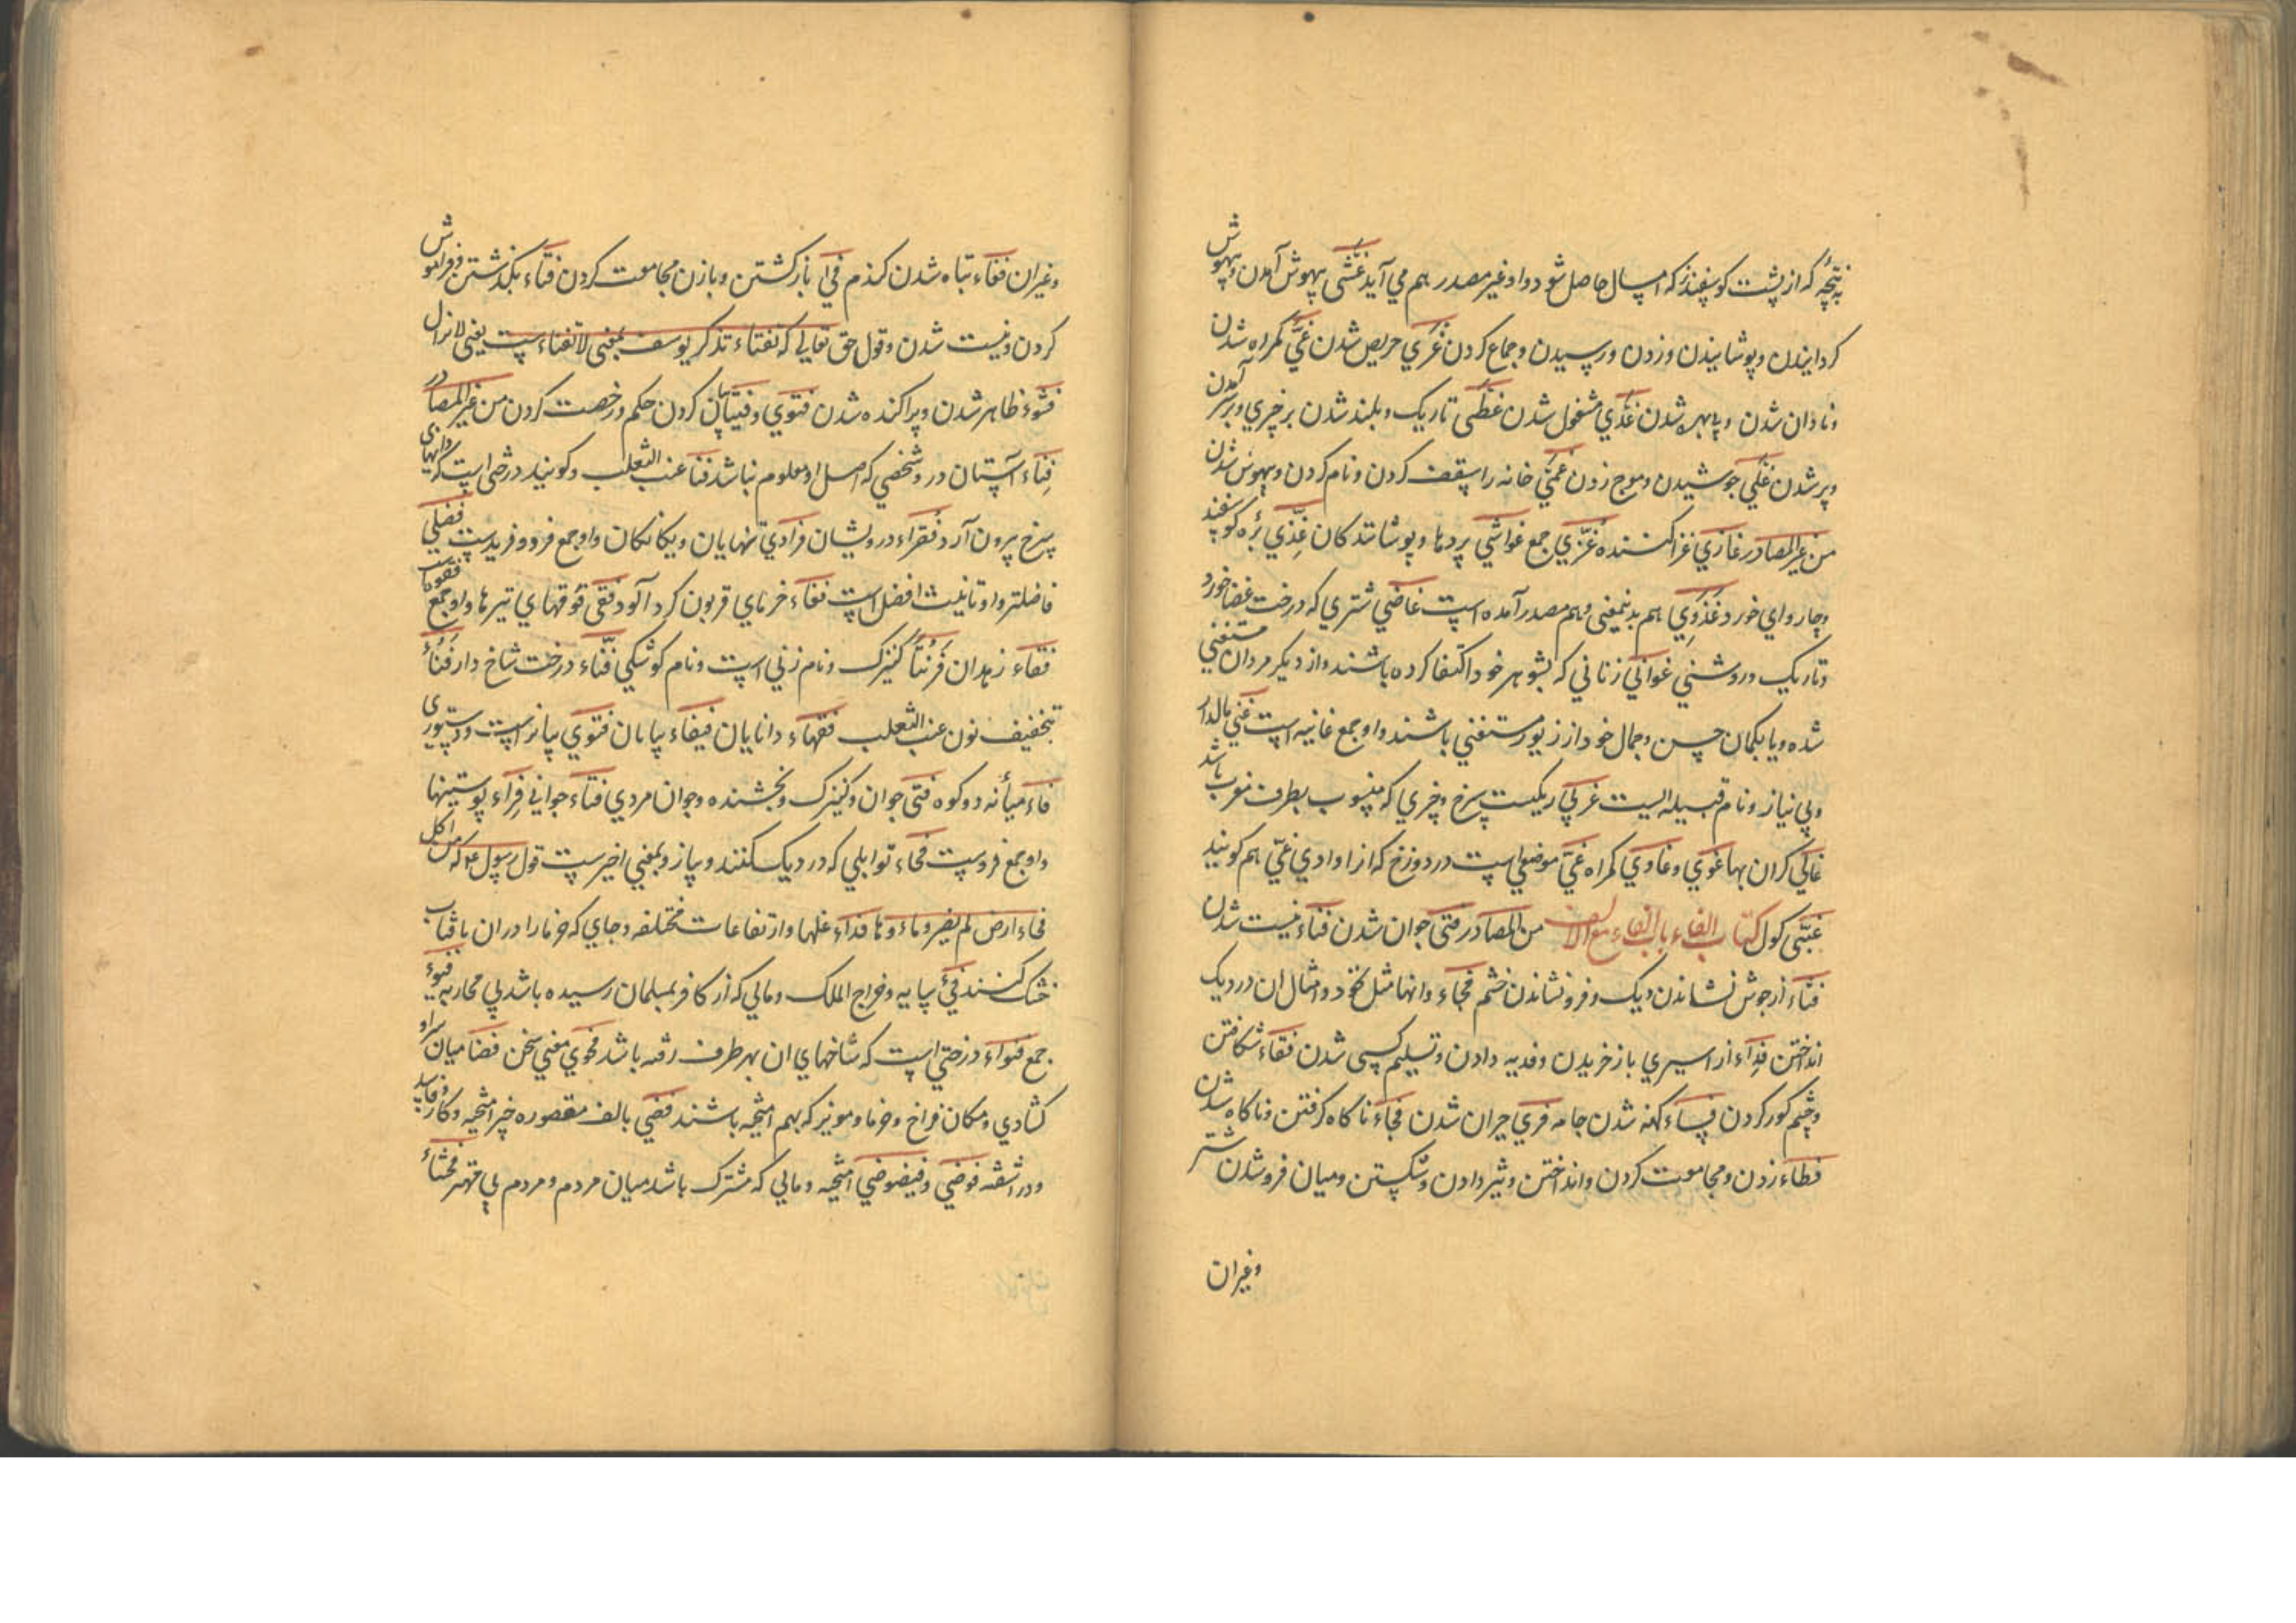 به نتیجهٔ که از پشت کوسفند نر که امسال حاصل شود و او غیر مصدر هم می آید غشی بیهوش آمدن و بیهوش
کردانیدن و پوشانیدن و زدن و رسیدن و جماع کردن غری حریص شدن غی کمراه شدن
و نادان شدن و بی بهره شدن غذی مشغول شدن غطی تاریک و بلند شدن بر چیزی و بر سر آمدن
و پر شدن غلی جوشیدن و موج زدن غمی خانه را سقف کردن و نام کردن و بیهوش شدن
من غیر المصادر غازی غزا کننده غزی جمع غواشی پردها و پوشانندکان غذی بره کوسفند
و چاروای خورد غذوی هم بدینمعنی و هم مصدر آمده است غاضی شتری که درخت غضا خورد
و تاریک و روشنی غوانی زنانی که بشوهر خود اکتفا کرده باشند و از دیکر مردان مستغنی
شده و یا بکمان حسن و جمال خود از زیور مستغنی باشند و او جمع غانیه است غنی مالدار
و بی نیاز و نام قبیله ایست غربی ریکیست سرخ و چیزی که منسوب بطرف مغرب باشد
غالی کران بها غوی و غاوی کمراه غی موضعی است در دوزخ که انرا وادی غی هم کویند
غبی کول کتاب الفاء باب الفاء مع الالف من المصادر فتی جوان شدن فناء نیست شدن
فثاء از جوش نشاندن دیک و فرو نشاندن خشم فحاء دانها مثل نخود و امثال ان در دیک
انداختن فداء از اسیری باز خریدن و فدیه دادن و تسلیم کسی شدن فقاء شکافتن
و چشم کور کردن فساء کهنه شدن جامه فری حیران شدن فجاء ناکاه کرفتن و ناکاه شدن
فطاء زدن و مجامعت کردن و انداختن و تیز دادن و شکستن و میان فرو شدن شتر
وغیران
وغیران فغاء تباه شدن کندم فی باز کشتن و با زن مجامعت کردن فتاء بکذشتن و فراموش
کردن و نیست شدن و قول حق تعالی که تفتاء تذکر یوسف بمعنی لا تفتاء ست یعنی لا تزال
فشوء ظاهر شدن و پراکنده شدن فتوی و فتیا بیان کردن حکم و رخصت کردن من غیر المصادر
فناء آستان در و شخصی که اصل او معلوم نباشد فنا عنب الثعلب و کویند درختی است که دانهای
سرخ بیرون آرد فقراء درویشان فرادی تنهایان و یکانکان و او جمع فرد و فرید ست فضلی
فاضلتر و او تانیث افضل است فغاء خرمای قربون کرد آلود فقی فوقهای تیرها و او جمع
فقاء زهدان فرتنا کنیزک و نام زنی است و نام کوشکی فنّاء درخت شاخ دار فنا
بتخفیف نون عنب الثعلب فقهاء دانایان فیفاء بیابان فتوی بیانست و دستوری
فاء میانه دو کوه فتی جوان و کنیزک و بخشنده و جوان مردی فتاء جوانی فراء پوستینها
و او جمع فروست فحاء توابلی که در دیک کنند و پیاز و بمعنی اخیرست قول رسول ع که من اکل
فحاء ارض لم یضره ماءها فداء غلها و ارتفاعات مختلفه و جای که خرما را در ان بافتاب
خشک کنند فیء سایه و خراج الملک و مالی که از کافر بمسلمان رسیده باشد بی محاربه فیوء
جمع فنواء درختی است که شاخهای ان بهر طرف رفته باشد فحوی معنی سخن فضا میان سرا و
کشادی و مکان فراخ و خرما و مویز که بهم امیخته باشند فضی بالف مقصوره چیز امیخته و کار فاسد
و در اشفته فوضی و فیضوضی امیخته و مالی که مشترک باشد میان مردم و مردم بی مهتر فحشاء